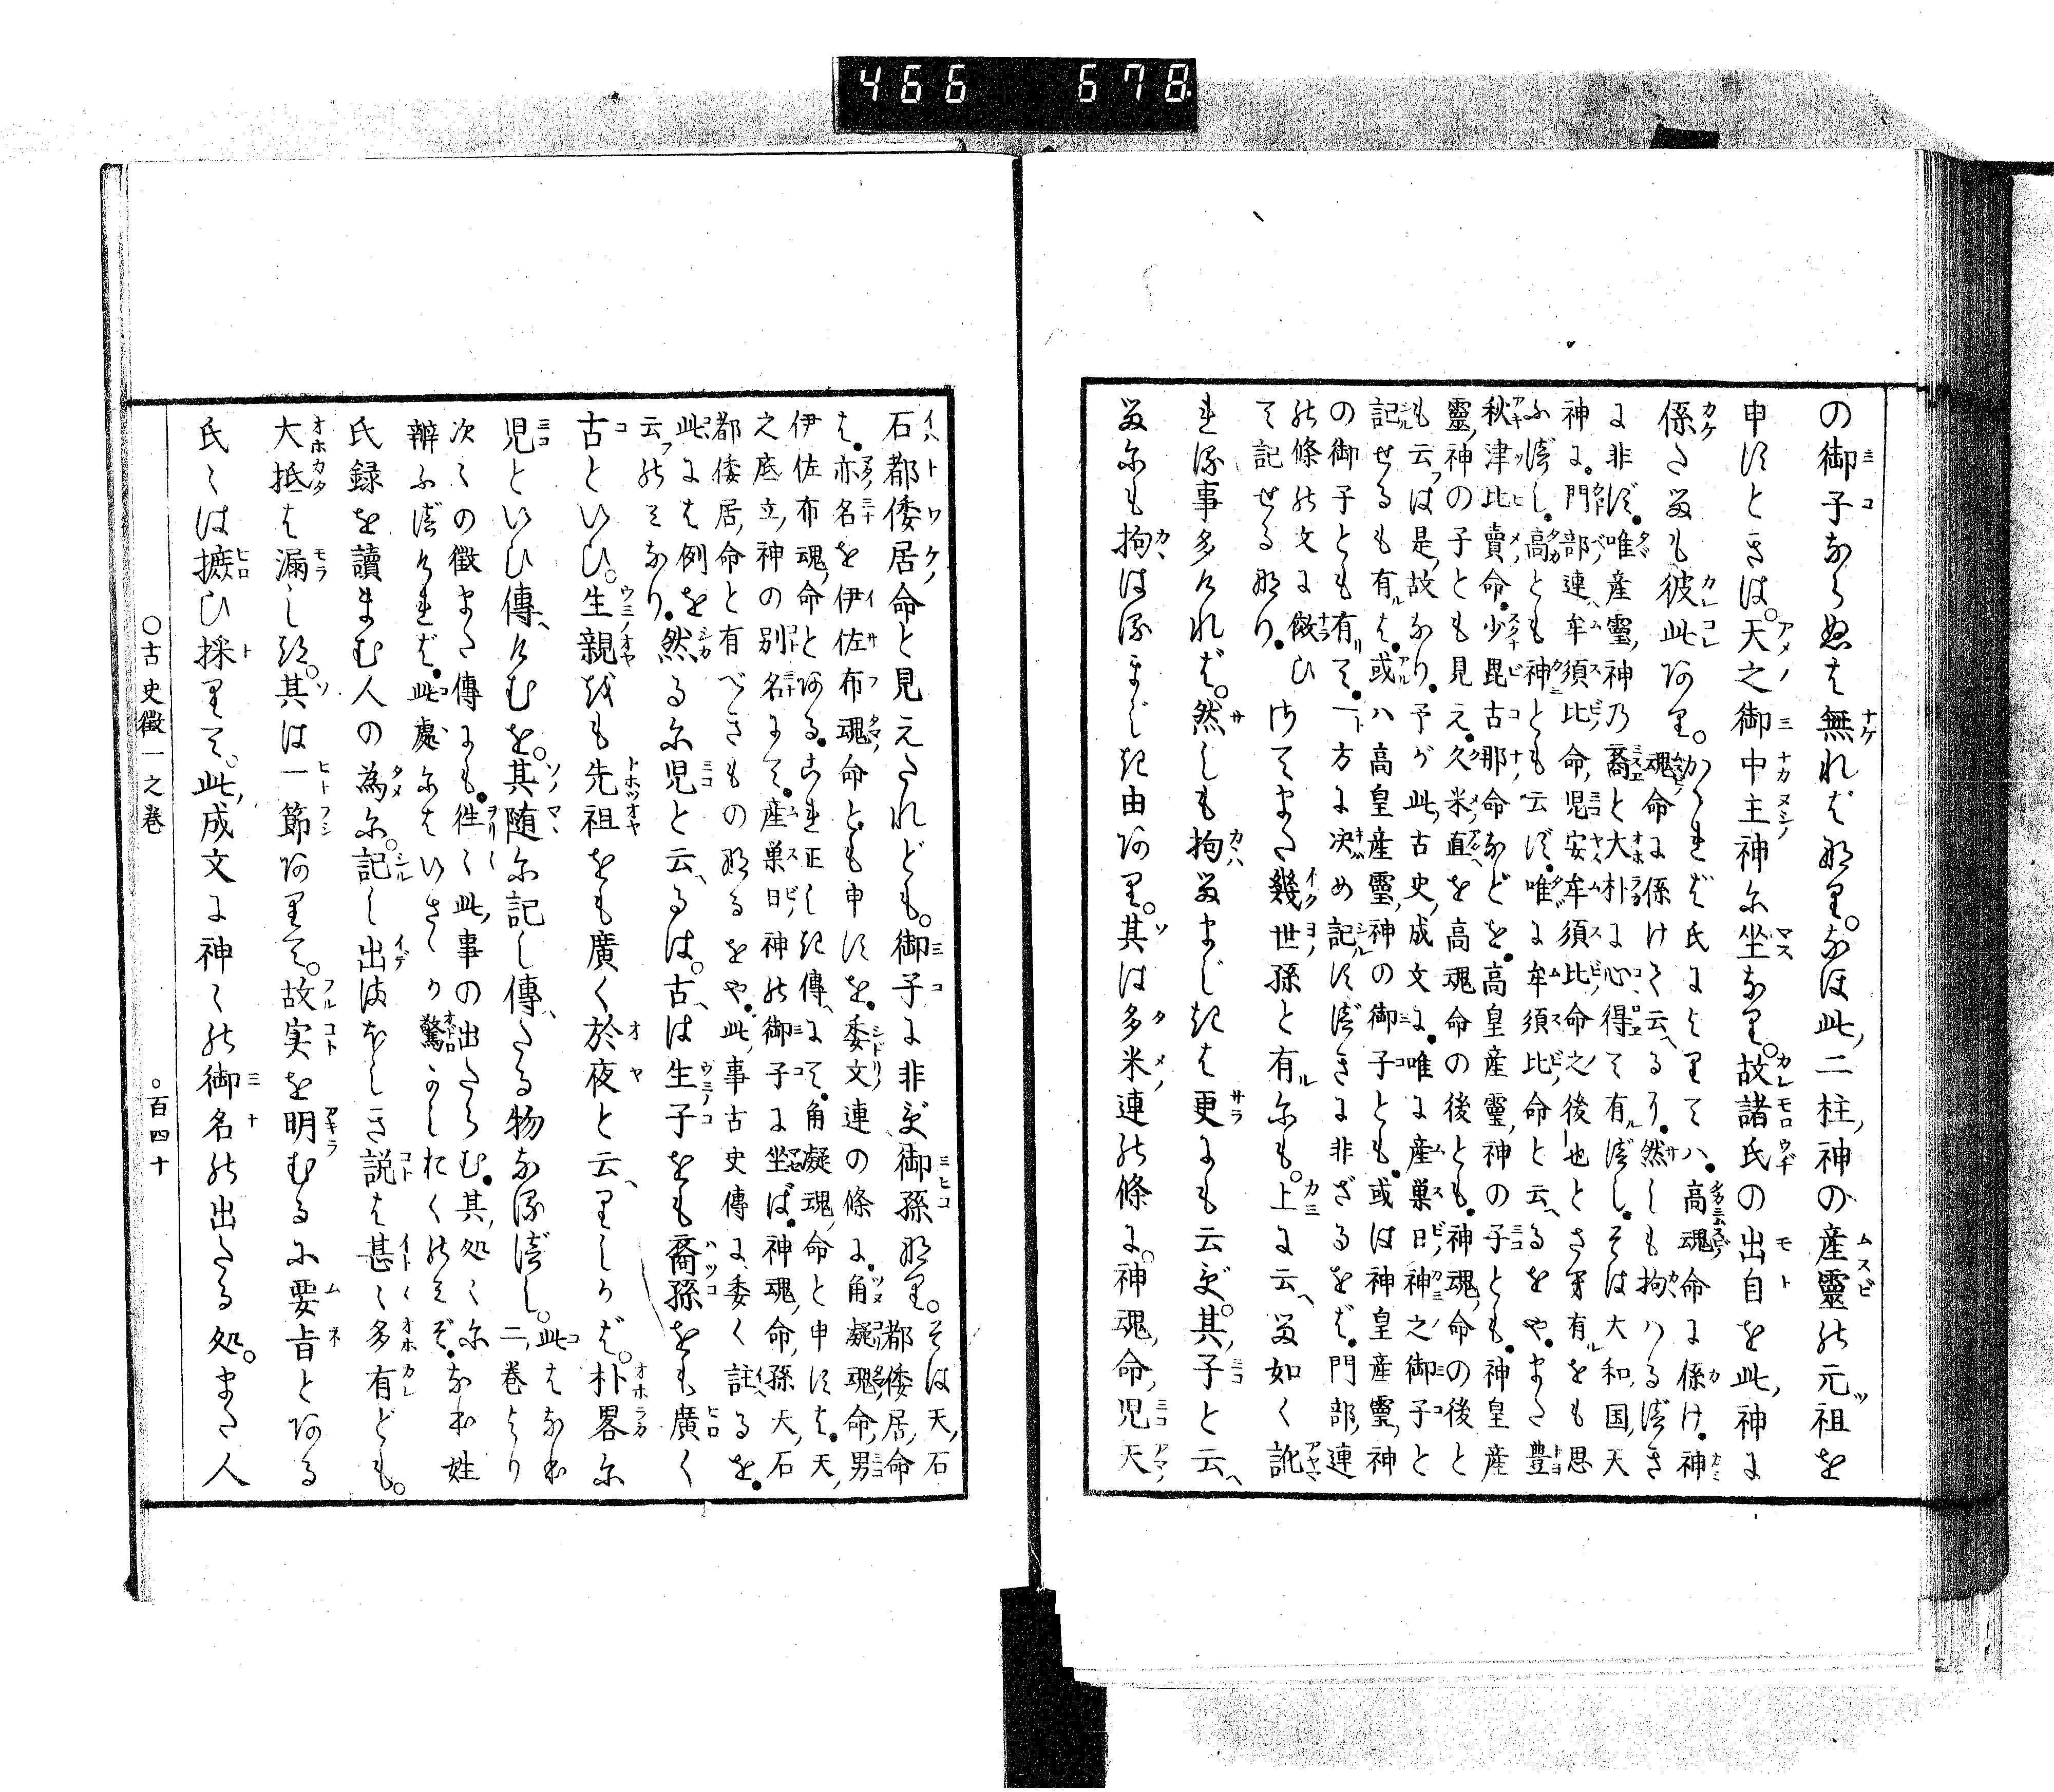 466 678
の御子ならぬは無れば那里。なほ此二柱神の産靈能元祖を
申すときは。天之御中主神尓坐なり。故諸氏の出自を此神に
係たるも彼此あり。
かゝれば氏によりては。高魂命に係け。神
魂命に係けて云へるあり。然しも拘はるべき
に非ず。唯産靈神乃裔と大朴に心得て有べし。そは大和国天
神に。門部連。牟須比命児安牟須比命之後也とさへ有をも思
ふべし。高とも神とも云ず。唯に牟須比命と云へるをや。また豊
秋津比賣命。少毘古那命などを。高皇産靈神の子とも。神皇産
靈神の子とも見え。久米直を高魂命の後とも。神魂命の後と
も云るは是故なり。予が此古史成文に。唯に産巣日神之御子と
記せるも有は。或ハ高皇産靈神の御子とも。或は神皇産靈神
の御子とも有て。一方に决め記すべきに非ざるをば。門部連
能條能文に倣ひて記せる那り。
はてまた幾世孫と有尓も。上に云へる如く訛
れる事多ければ。然しも拘るまじきは更にも云ず。其子と云へ
る尓も拘はるまじき由あり。其は多米連能條に。神魂命児天
石都倭居命と見えたれども。御子に非ず御孫那里。
そは天石
都倭居命
は。亦名を伊佐布魂命とも申すを。委文連の條に。角凝魂命男
伊佐布魂命とある。これ正しき傳にて。角凝魂命と申すは。天
之底立神の別名にて。産巣日神能御子に坐ば。神魂命孫天石
都倭居命と有べきもの那るをや。此事古史傳に委く註るを。
此には例を云ふ能みなり。
然る尓児と云へるは。古へは生子をも裔孫をも廣く
古といひ。生親をも先祖をも廣く於夜と云へりしかば。朴畧尓
児といひ傳へけむを。其随尓記し傳へたる物なるべし。
此はなほ
二巻より
次々の徴また傳にも。徃々此事の出たらむ。其処々尓
辨ふべければ。此處尓はいさゝか驚かしおく能みぞ。なほ姓
氏録を讀まむ人の為尓。記し出まほしき説は甚々多有ども。
大抵は漏しき。其は一節ありて。故実を明むる尓要旨とある
氏々は摭ひ採りて。此成文に神々能御名能出たる処。また人
○古史徴一之巻 ○百四十